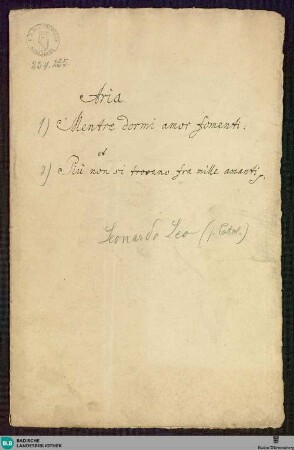 254. 255
Aria
1) Mentre dormi amor fomenti.
et
2) Più non si trovano fra mille amanti
Leonardo Leo
BLB BADISCHE
LANDESBIBLIOTHEK